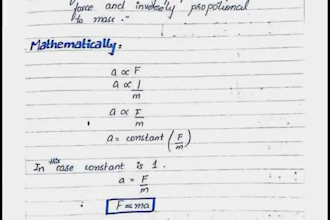 force and inversely propotional
to mass."
Mathematically:
a ∝ F
a ∝ 1/m
a ∝ F/m
a = constant (F/m)
In this case constant is 1.
a = F/m
F = ma